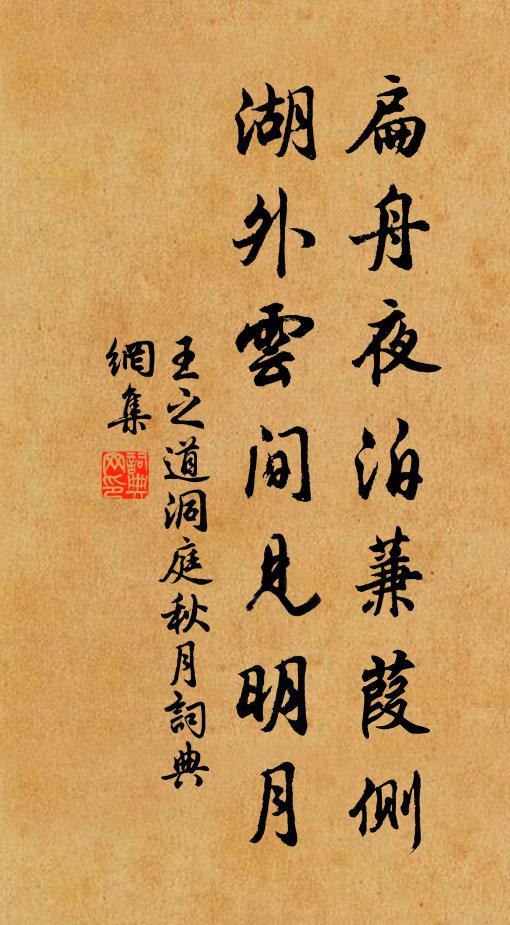 扁舟夜泊蒹葭側
湖外雲間見明月
王之道洞庭秋月詞典
網集
詞典網印